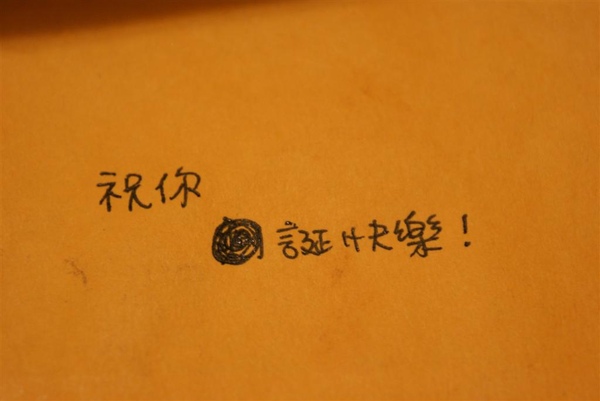 祝你
誕快樂！